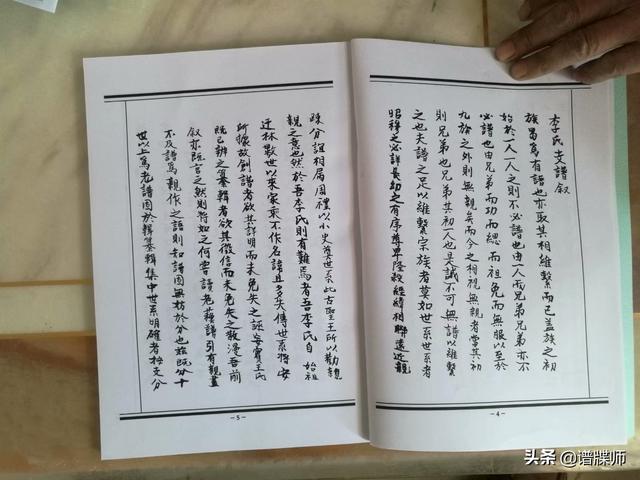 李氏支譜叙
族曷為有譜也亦取其相維繫而已盖族之初
始於一人一人之則不必譜也由一人而兄弟兄弟亦不
必譜也由兄弟而功而緦而祖免而無服以至於
九族之外則無親矣而今之相視無親者當其初
則兄弟也兄弟其初一人也是誠不可無譜以維繫
之也夫譜之足以維繫宗族者莫如世系世系者
昭穆之必詳長幼之有序尊卑隆殺經緯相聯遠近親
-4-
疎分誼相屬周禮以小史奠世系此古聖王所以勸親
親之意也然於吾李氏則有難焉者吾李氏自始祖
迁林數世以來家乘不作名諱且多失傳世系將安
所據故創譜者欲其詳明而未免失之誣妄實王氏
既已辨之纂輯者欲其徵信而未免失之散漫吾前
叙亦既言之然則將如之何雲譜老蘇譜引有親盡
不及譜為親作之語則知譜固無妨於分也茲既分十
世以上為老譜因於輯纂輯集中世系明確者按支分
-5-
头条@谱牒师